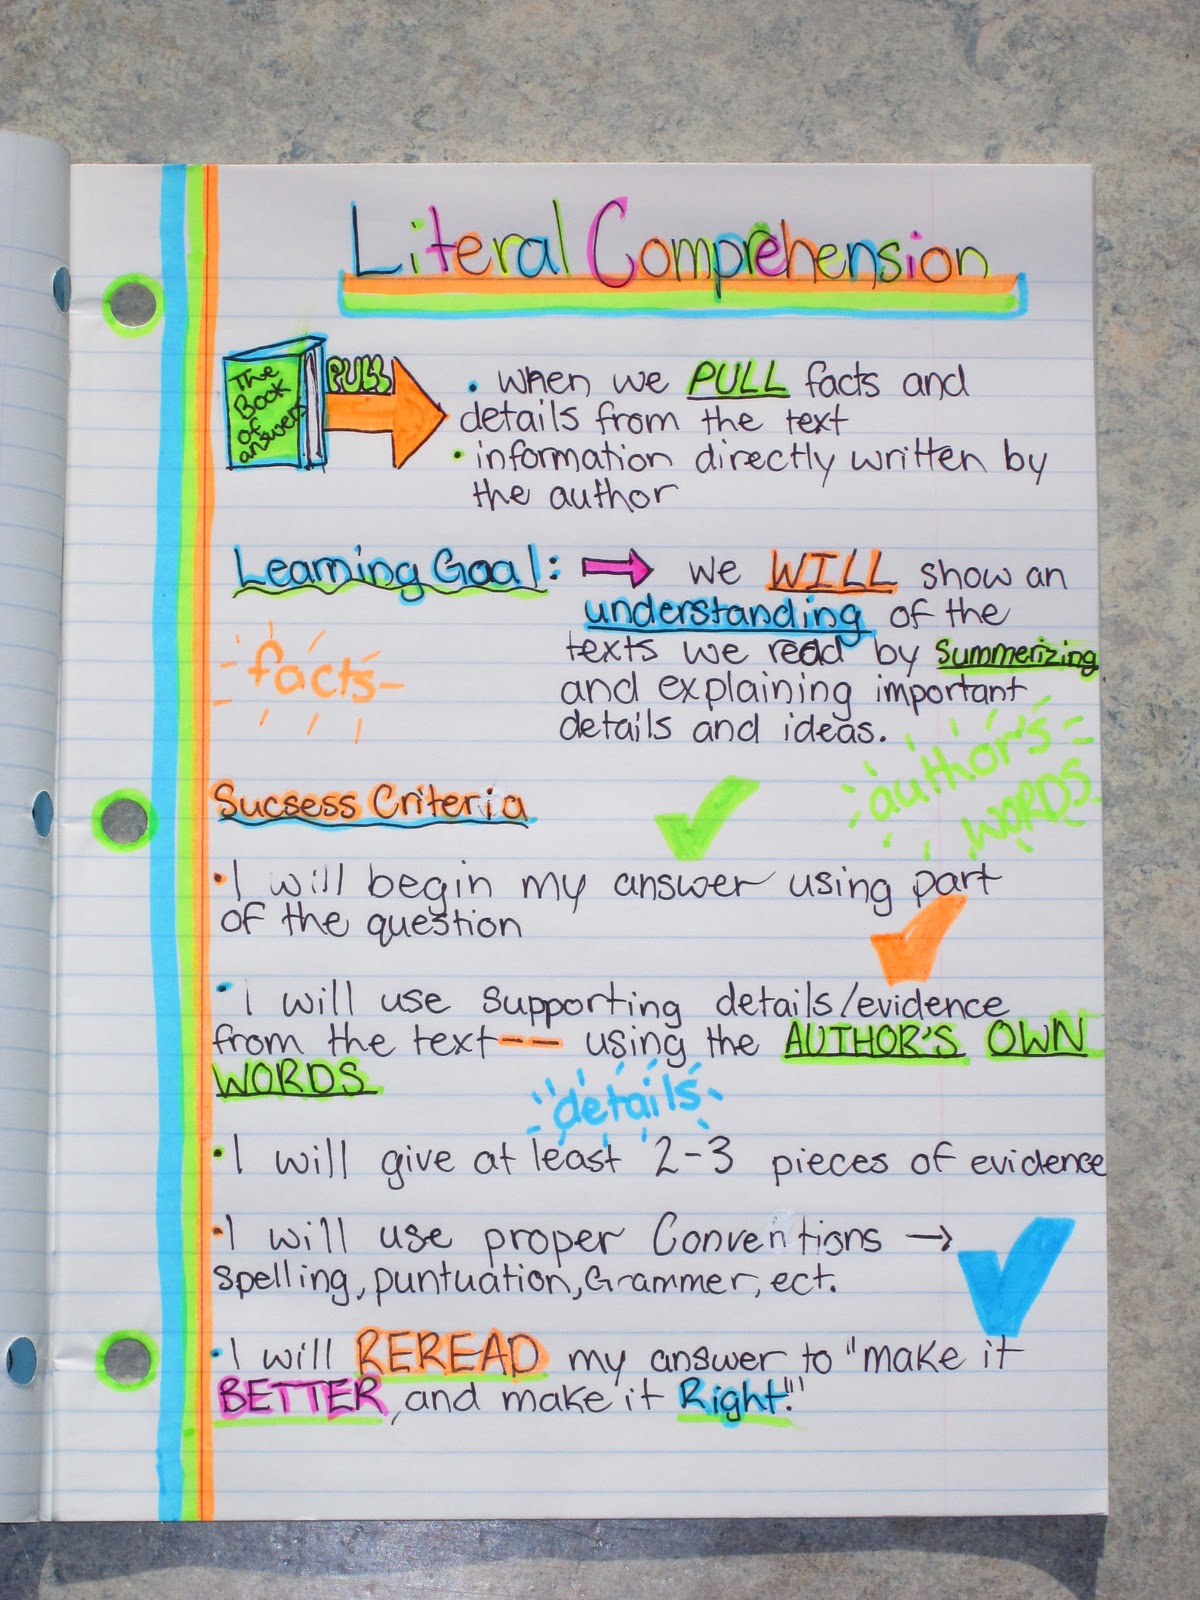 Literal Comprehension
The
Book
of
answers
PULL
• when we PULL facts and
details from the text
• information directly written by
the author
Learning Goal: → we WILL show an
understanding of the
texts we read by Summerizing
and explaining important
details and ideas.
facts
author's
WORDS
Sucsess Criteria
• I will begin my answer using part
of the question
• I will use supporting details/evidence
from the text -- using the AUTHOR'S OWN
WORDS
details
• I will give at least 2-3 pieces of evidence
• I will use proper Conventions →
spelling, puntuation, Grammer, ect.
• I will REREAD my answer to "make it
BETTER, and make it Right!"